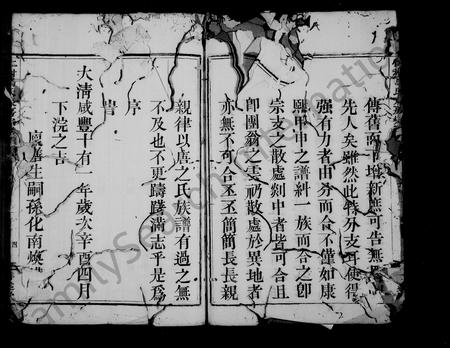 傳舊而
增新庶可告無
先人矣雖然此特分支耳使得
强有力者由分而合不僅如康
熙甲申之譜糾一族而合之卽
宗支之散處剡中者皆可合且
卽團翁之雲礽散處於異地者
亦無不可合丕丕簡簡長長親
親律以唐之氏族譜有過之無
不及也不更躊躇滿志乎是爲
序
旹
大清咸豐十有一年歲次辛酉四月
下浣之吉
廩膳生嗣孫化南
FamilySearch International